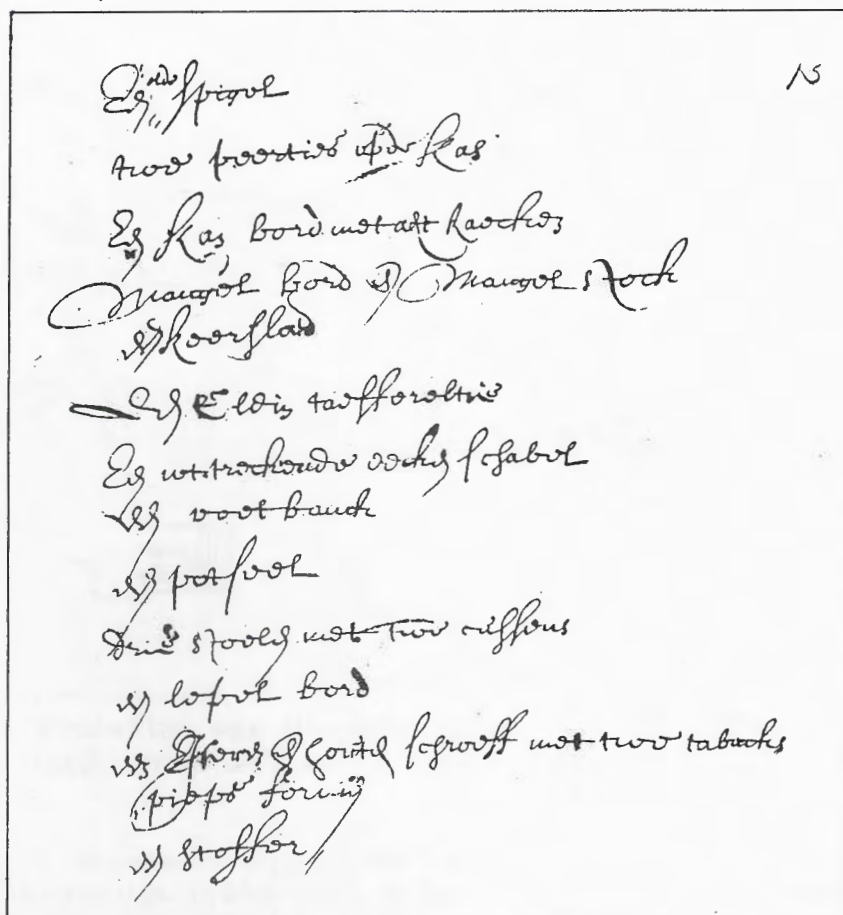 15
Een oude spigel
twee peerties op de kas
Een kas bord met aft raeckien
Mangel bord en Mangel stock
een keerslad
Een taeffereltie
Een uuttreckende eecken schabel
een voet banck
een potseel
drie stoelen met twe cussens
een lepel bord
een Eseren houten schroeff met twe tabacks
pieps formn
een stoffer